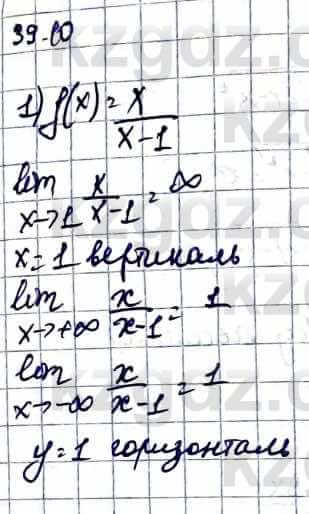 39-10
1) f(x) = x/(x-1)
lim x→1 x/(x-1) = ∞
x = 1 вертикаль
lim x→+∞ x/(x-1) = 1
lim x→-∞ x/(x-1) = 1
y = 1 горизонталь